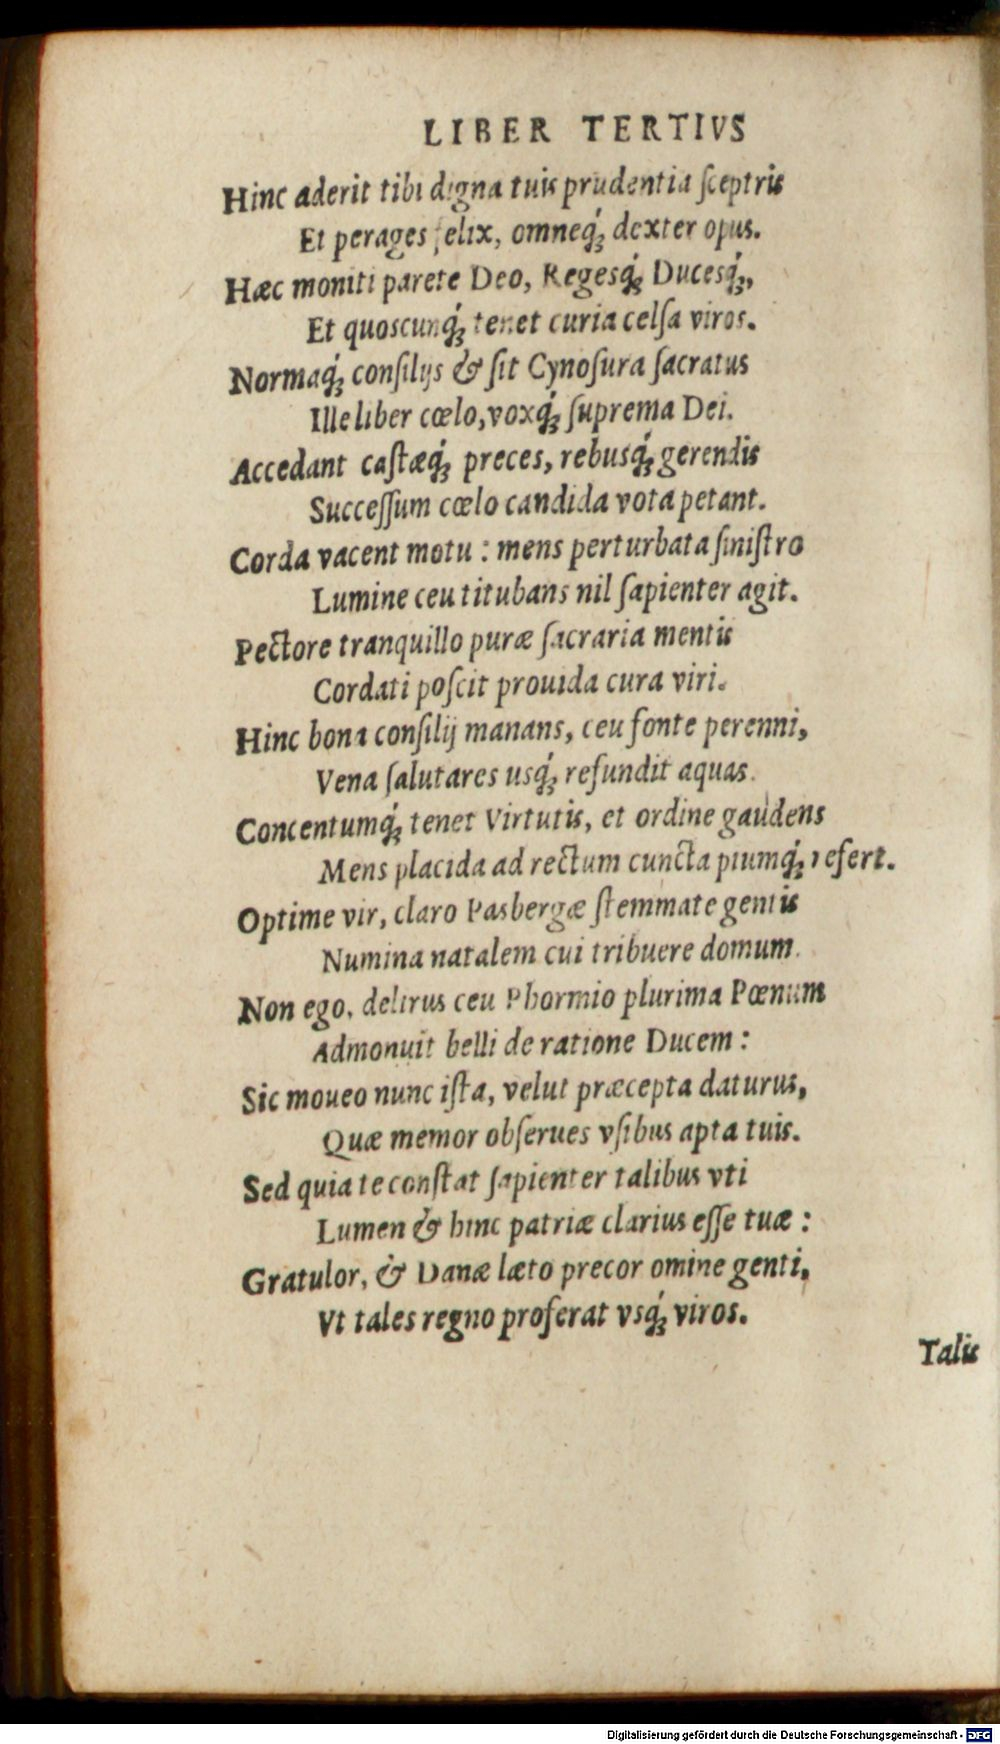 LIBER TERTIVS
Hinc aderit tibi digna tuis prudentia ſceptris
Et perages felix, omneq́; dexter opus.
Hæc moniti parete Deo, Regesq́; Ducesq́;,
Et quoscunq́; tenet curia celſa viros.
Normaq́; conſilijs & ſit Cynoſura ſacratus
Ille liber cœlo, voxq́; ſuprema Dei.
Accedant caſtæq́; preces, rebusq́; gerendis
Succeſſum cœlo candida vota petant.
Corda vacent motu : mens perturbata ſiniſtro
Lumine ceu titubans nil ſapienter agit.
Pectore tranquillo puræ ſacraria mentis
Cordati poſcit prouida cura viri.
Hinc bona conſilij manans, ceu fonte perenni,
Vena ſalutares usq́; refundit aquas.
Concentumq́; tenet Virtutis, et ordine gaudens
Mens placida ad rectum cuncta piumq́; refert.
Optime vir, claro Pasbergæ ſtemmate gentis
Numina natalem cui tribuere domum.
Non ego, delirus ceu Phormio plurima Pœnum
Admonuit belli de ratione Ducem :
Sic moueo nunc iſta, velut præcepta daturus,
Quæ memor obſerues vſibus apta tuis.
Sed quia te conſtat ſapienter talibus vti
Lumen & hinc patriæ clarius eſſe tuæ :
Gratulor, & Danæ læto precor omine genti,
Vt tales regno proferat vsq́; viros.
Talis
Digitalisierung gefördert durch die Deutsche Forschungsgemeinschaft - DFG